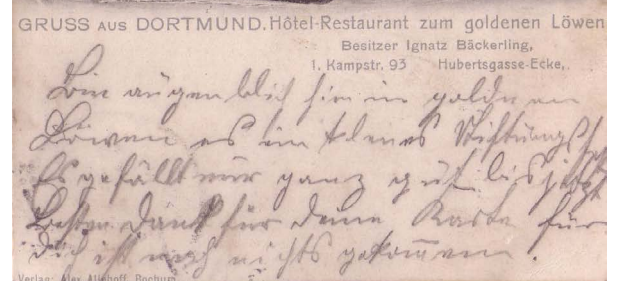 GRUSS AUS DORTMUND. Hôtel-Restaurant zum goldenen Löwen
Besitzer Ignatz Bäckerling,
1. Kampstr. 93 Hubertsgasse-Ecke,
Bin augenblich hier im goldnen
Löwen es ein kleines Stiftungsf
Es gefällt mir ganz gut bis jetzt
Besten Dank für deine Karte für
dich ist noch nichts gekommen.
Verlag: Alex Bochum